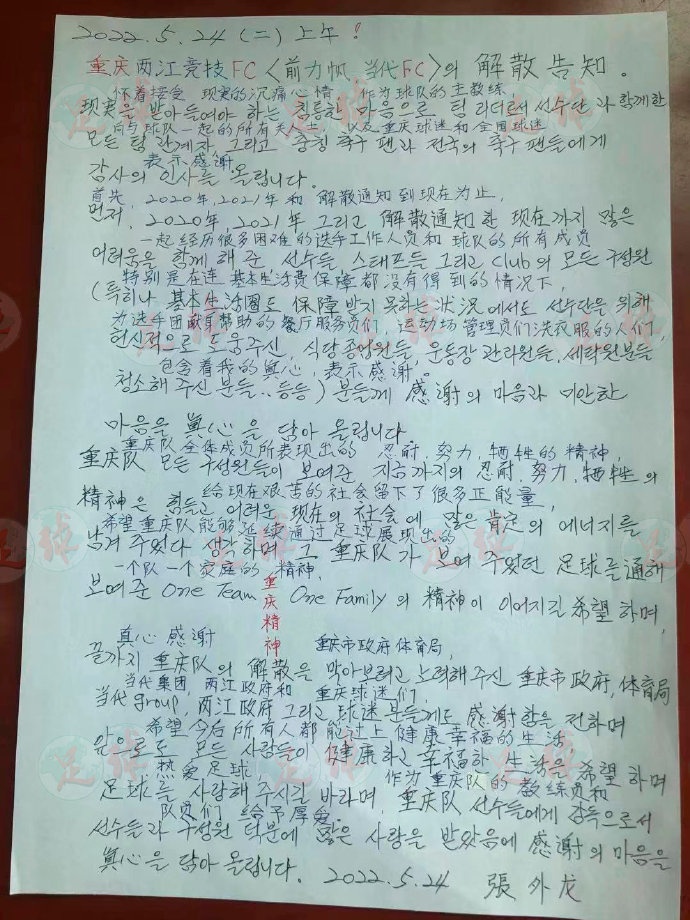 2022.5.24(二)上午!
重庆两江竞技FC〈前力帆, 当代FC〉의 解散告知。
怀着接受 现实的沉痛心情 作为球队的主教练,
현실을 받아들여야 하는 침통한 마음으로 팀 리더로서 선수단과 함께한
向与球队一起的所有关人士 以及重庆球迷和全国球迷
모든 팀 관계자 그리고 충칭 축구 팬과 전국의 축구 팬들에게
表示感谢
감사의 인사를 올립니다.
首先, 2020年,2021年 和 解散通知到现在为止,
먼저, 2020年,2021年 그리고 解散通知한 현재까지 많은
一起经历很多困难的选手工作人员和球队的所有成员
어려움을 함께 해 준 선수들 스태프들 그리고 Club의 모든 구성원
特别是在连 基本生活费保障都没有得到的情况下,
(특히나 基本生活圈도 保障받지 못하는 状况에서도 선수단을 위해
为选手团献身帮助的餐厅服务员们, 运动场管理员们洗衣服的人们,
헌신적으로 도움주신, 식당종업원들, 운동장 관리원들, 세탁원분들
包含着我的真心, 表示感谢。
청소해 주신 분들..등등) 분들께 感谢의 마음과 미안한
마음을 真心을 담아 올립니다.
重庆队全体成员所表现出的 忍耐,努力,牺牲的精神,
重庆队 모든 구성원들이 보여준 지금까지의 忍耐, 努力, 牺牲의
给现在艰苦的社会留下了很多正能量,
精神은 힘들고 어려운 현재의 社会에 많은 肯定의 에너지를
希望重庆队能够延续通过足球展现出的
남겨 주었다 생각하며 그 重庆队가 보여 주었던 足球를 通해
一个队一个家庭的 精神,
보여준 One Team One Family의 精神이 이어지길 希望하며,
重庆精神
真心感谢 重庆市政府体育局,
끝까지 重庆队의 解散을 막아보려고 노력해 주신 重庆市政府,体育局
当代集团, 两江政府和 重庆球迷们,
当代group, 两江政府 그리고 球迷분들께도 感谢함을 전하며
希望今后所有人都能过上健康幸福的生活
앞으로도 모든 사람들이 健康하고 幸福하 生活을 希望하며
热爱足球 作为重庆队的教练员和
足球를 사랑해 주시길 바라며 重庆队 선수들에게 감독으로서
队员们 给予厚爱。
선수들과 구성원 덕분에 많은 사랑을 받았음에 感谢의 마음을
真心을 담아 올립니다. 2022.5.24 張外龙
足球